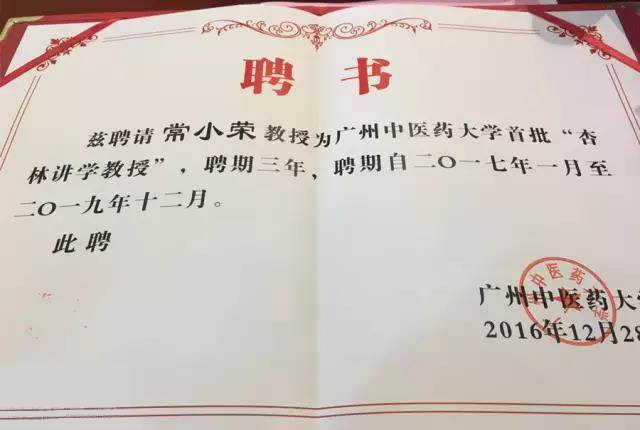 聘书
兹聘请常小荣教授为广州中医药大学首批“杏
林讲学教授”，聘期三年，聘期自二〇一七年一月至
二〇一九年十二月。
此聘
广州中医药大学
2016年12月28